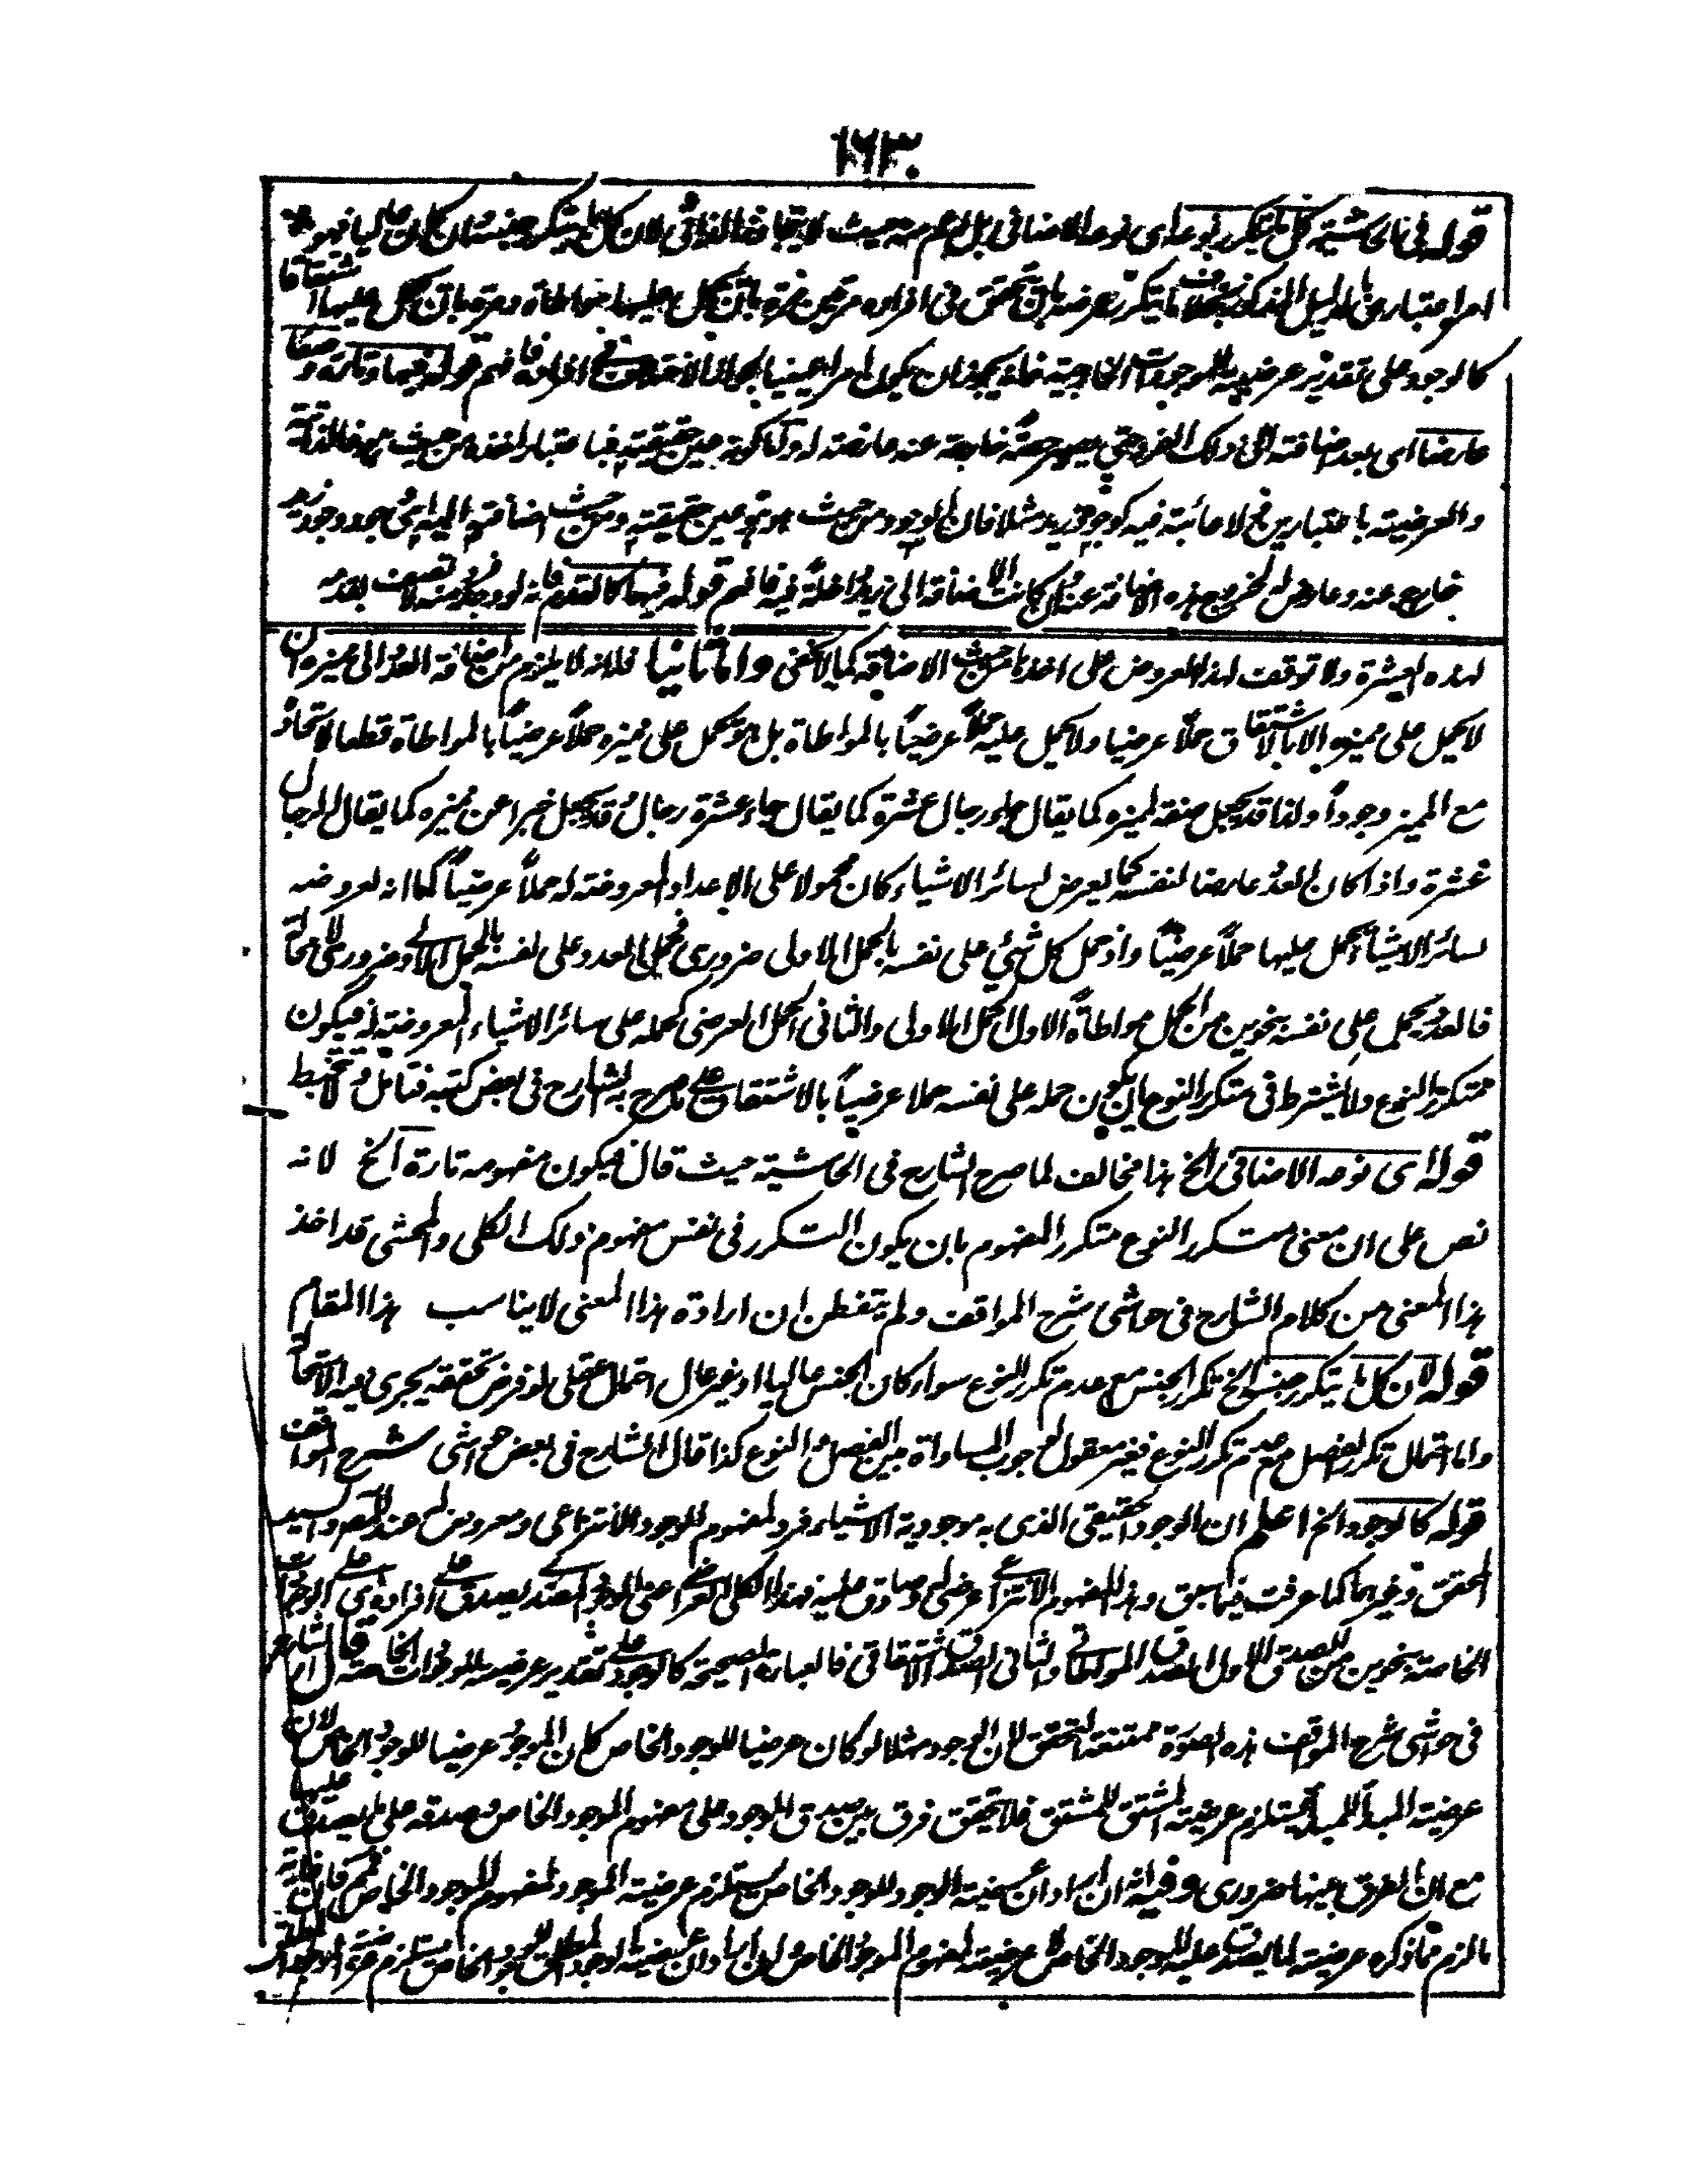 ١٦٣
قوله في الحاشية كل ما يتكرر نوعه اى نوعه الاضافى بل اعم منه حيث لان كل ما يتكرر جنسه كان عاليا فهو
امر اعتبارى بالدليل المذكور بخلاف ما يتكرر عرضه بان يتحقق فى افراده مرتين مرة بان يحمل عليها مواطاة ومرة بان يحمل عليها اشتقاقا
كالوجود على تقدير عرضيته للموجودات الخارجية فانه يجوز ان يكون امرا عينيا افراده فافهم قوله فيها وتارة وصفا
عارضا اى بعد اضافته الى ذلك الفرد حتى يصير حصة خارجة عنه عارضة له واما كونه عين حقيقته فباعتبار اخذه من حيث هو فالذاتية
والعرضية باعتبارين فلا شائبة فيه كوجود زيد مثلا فان الوجود من حيث هو هو عين حقيقته ومن حيث اضافته اليه وجود وجود زيد
خارج عنه وعارض له لخروج هذه الاضافة عنه وان كانت الاضافة الى زيد داخلة فيه فافهم قوله فيها كالقدم فانه لو وجد فرد منه لاتصف بقدمه
لهذه العشرة ولا توقف لهذا المعروض على اخذها من حيث الاضافة كما لا يخفى واما ثانيا فلانه لا يلزم من اضافة العدد الى مميزه ان
لا يحمل على مميزه الا بالاشتقاق حملا عرضيا ولا يحمل عليه حملاً عرضياً بالمواطاة بل هو يحمل على مميزه حملاً عرضياً بالمواطاة قطعا لاتحاده
مع المميز وجوداً ولذا قد يجعل صفة لمميزه كما يقال جاء رجال عشرة كما يقال جاء عشرة رجال وقد يجعل خبرا عن مميزه كما يقال الرجال
عشرة واذا كان العدد عارضا لنفسه كما يعرض لسائر الاشياء كان محمولا على الاعداد المعروضة له حملاً عرضياً كما انه لعروضه
لسائر الاشياء يحمل عليها حملاً عرضياً واذ حمل كل شئ على نفسه بالحمل الاولى ضرورى فحمل العدد على نفسه بالحمل الاولى ضرورى لا محالة
فالعدد يحمل على نفسه بنحوين من الحمل مواطاة الاول الحمل الاولى والثانى الحمل العرضى كحمله على سائر الاشياء المعروضة له فيكون
متكرر النوع ولا يشترط فى متكرر النوع ان يكون حمله على نفسه حملا عرضياً بالاشتقاق على ما صرح به الشارح فى بعض كتبه فتامل ولا تخبط
قوله اى نوعه الاضافى الخ هذا مخالف لما صرح الشارح فى الحاشية حيث قال فيكون مفهومه تارة الخ لانه
نص على ان معنى متكرر النوع متكرر المفهوم بان يكون التكرر فى نفس مفهوم ذلك الكلى والمحشى قد اخذ
هذا المعنى من كلام الشارح فى حواشى شرح المواقف ولم يتفطن ان ارادة هذا المعنى لا يناسب هذا المقام
قوله لان كل ما يتكرر جنسه الخ تكرر الجنس مع عدم تكرر النوع سواء كان الجنس عاليا او غير عال احتمال عقلى لو فرض تحققه يجرى فيه الاتحاد
واما احتمال تكرر الفصل مع عدم تكرر النوع فغير معقول لوجوب المساواة بين الفصل والنوع كذا قال الشارح فى بعض حواشى شرح المواقف
قوله كالوجود الخ اعلم ان الوجود الحقيقى الذى به موجودية الاشياء فرد لمفهوم الوجود الانتزاعى ومعروض له عند المصـ والسيد
المحقق وغيرهما كما عرفت فيما سبق وهذا المفهوم الانتزاعى عرضى له صادق عليه فهذا الكلى العرضى اعنى الوجود المصدرى يصدق على افراده اى على الوجودات
الخاصة بنحوين من الصدق الاول الصدق المواطاتى والثانى الصدق الاشتقاقى فالعبارة الصحيحة كالوجود على تقدير عرضيته للوجودات الخاصة قال الشارح
فى حواشى شرح المواقف هذه الصورة ممتنعة التحقق لان الوجود مثلا لو كان عرضيا للوجود الخاص كان الموجود عرضيا للموجود الخاص لان
عرضية المبدأ للمبدأ يستلزم عرضية المشتق للمشتق فلا يتحقق فرق بين صدق الموجود على مفهوم الموجود الخاص وصدقه على ما يصدق عليه
مع ان الفرق بينهما ضرورى وفيه انه ان اراد ان عرضية الوجود للوجود الخاص يستلزم عرضية الموجود لمفهوم الموجود الخاص فمم فان غاية
ما لزم مما ذكره عرضيته لما يصدق عليه الموجود الخاص لا عرضيته لمفهوم الموجود الخاص وان اراد ان عرضية الوجود المطلق للوجود الخاص يستلزم عرضية الموجود المطلق